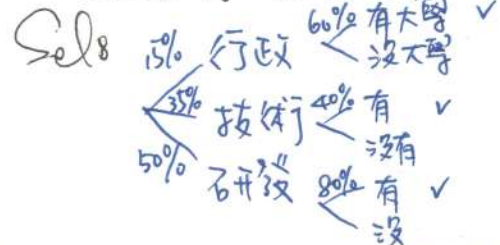 Sol:
15% 行政 60% 有大學 ✓
沒大學
35% 技術 40% 有 ✓
沒有
50% 研發 80% 有 ✓
沒